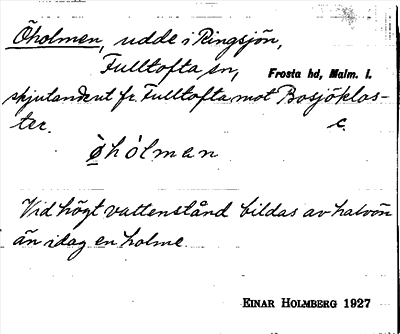 Öholmen, udde i Ringsjön,
Fulltofta sn, Frosta hd, Malm. l.
skjutande ut fr. Fulltofta mot Bosjöklos-
ter. c.
òhólman
Vid högt vattenstånd bildas av halvön
än idag en holme.
EINAR HOLMBERG 1927